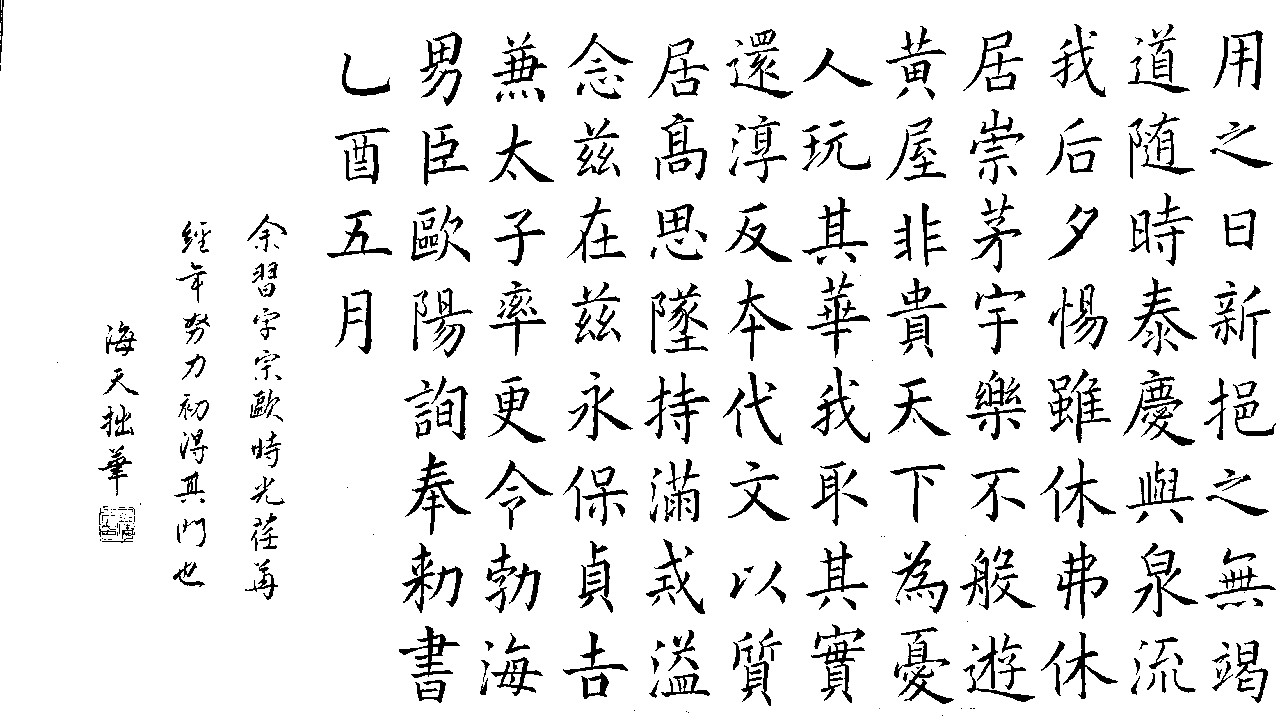 用之日新挹之無竭
道随時泰慶與泉流
我后夕惕雖休弗休
居崇茅宇樂不般遊
黄屋非貴天下為憂
人玩其華我取其實
還淳反本代文以質
居高思墜持滿戒溢
念兹在兹永保貞吉
兼太子率更令勃海
男臣歐陽詢奉勑書
乙酉五月
余習字宗歐時光荏苒
經年努力初得其門也
海天拙筆